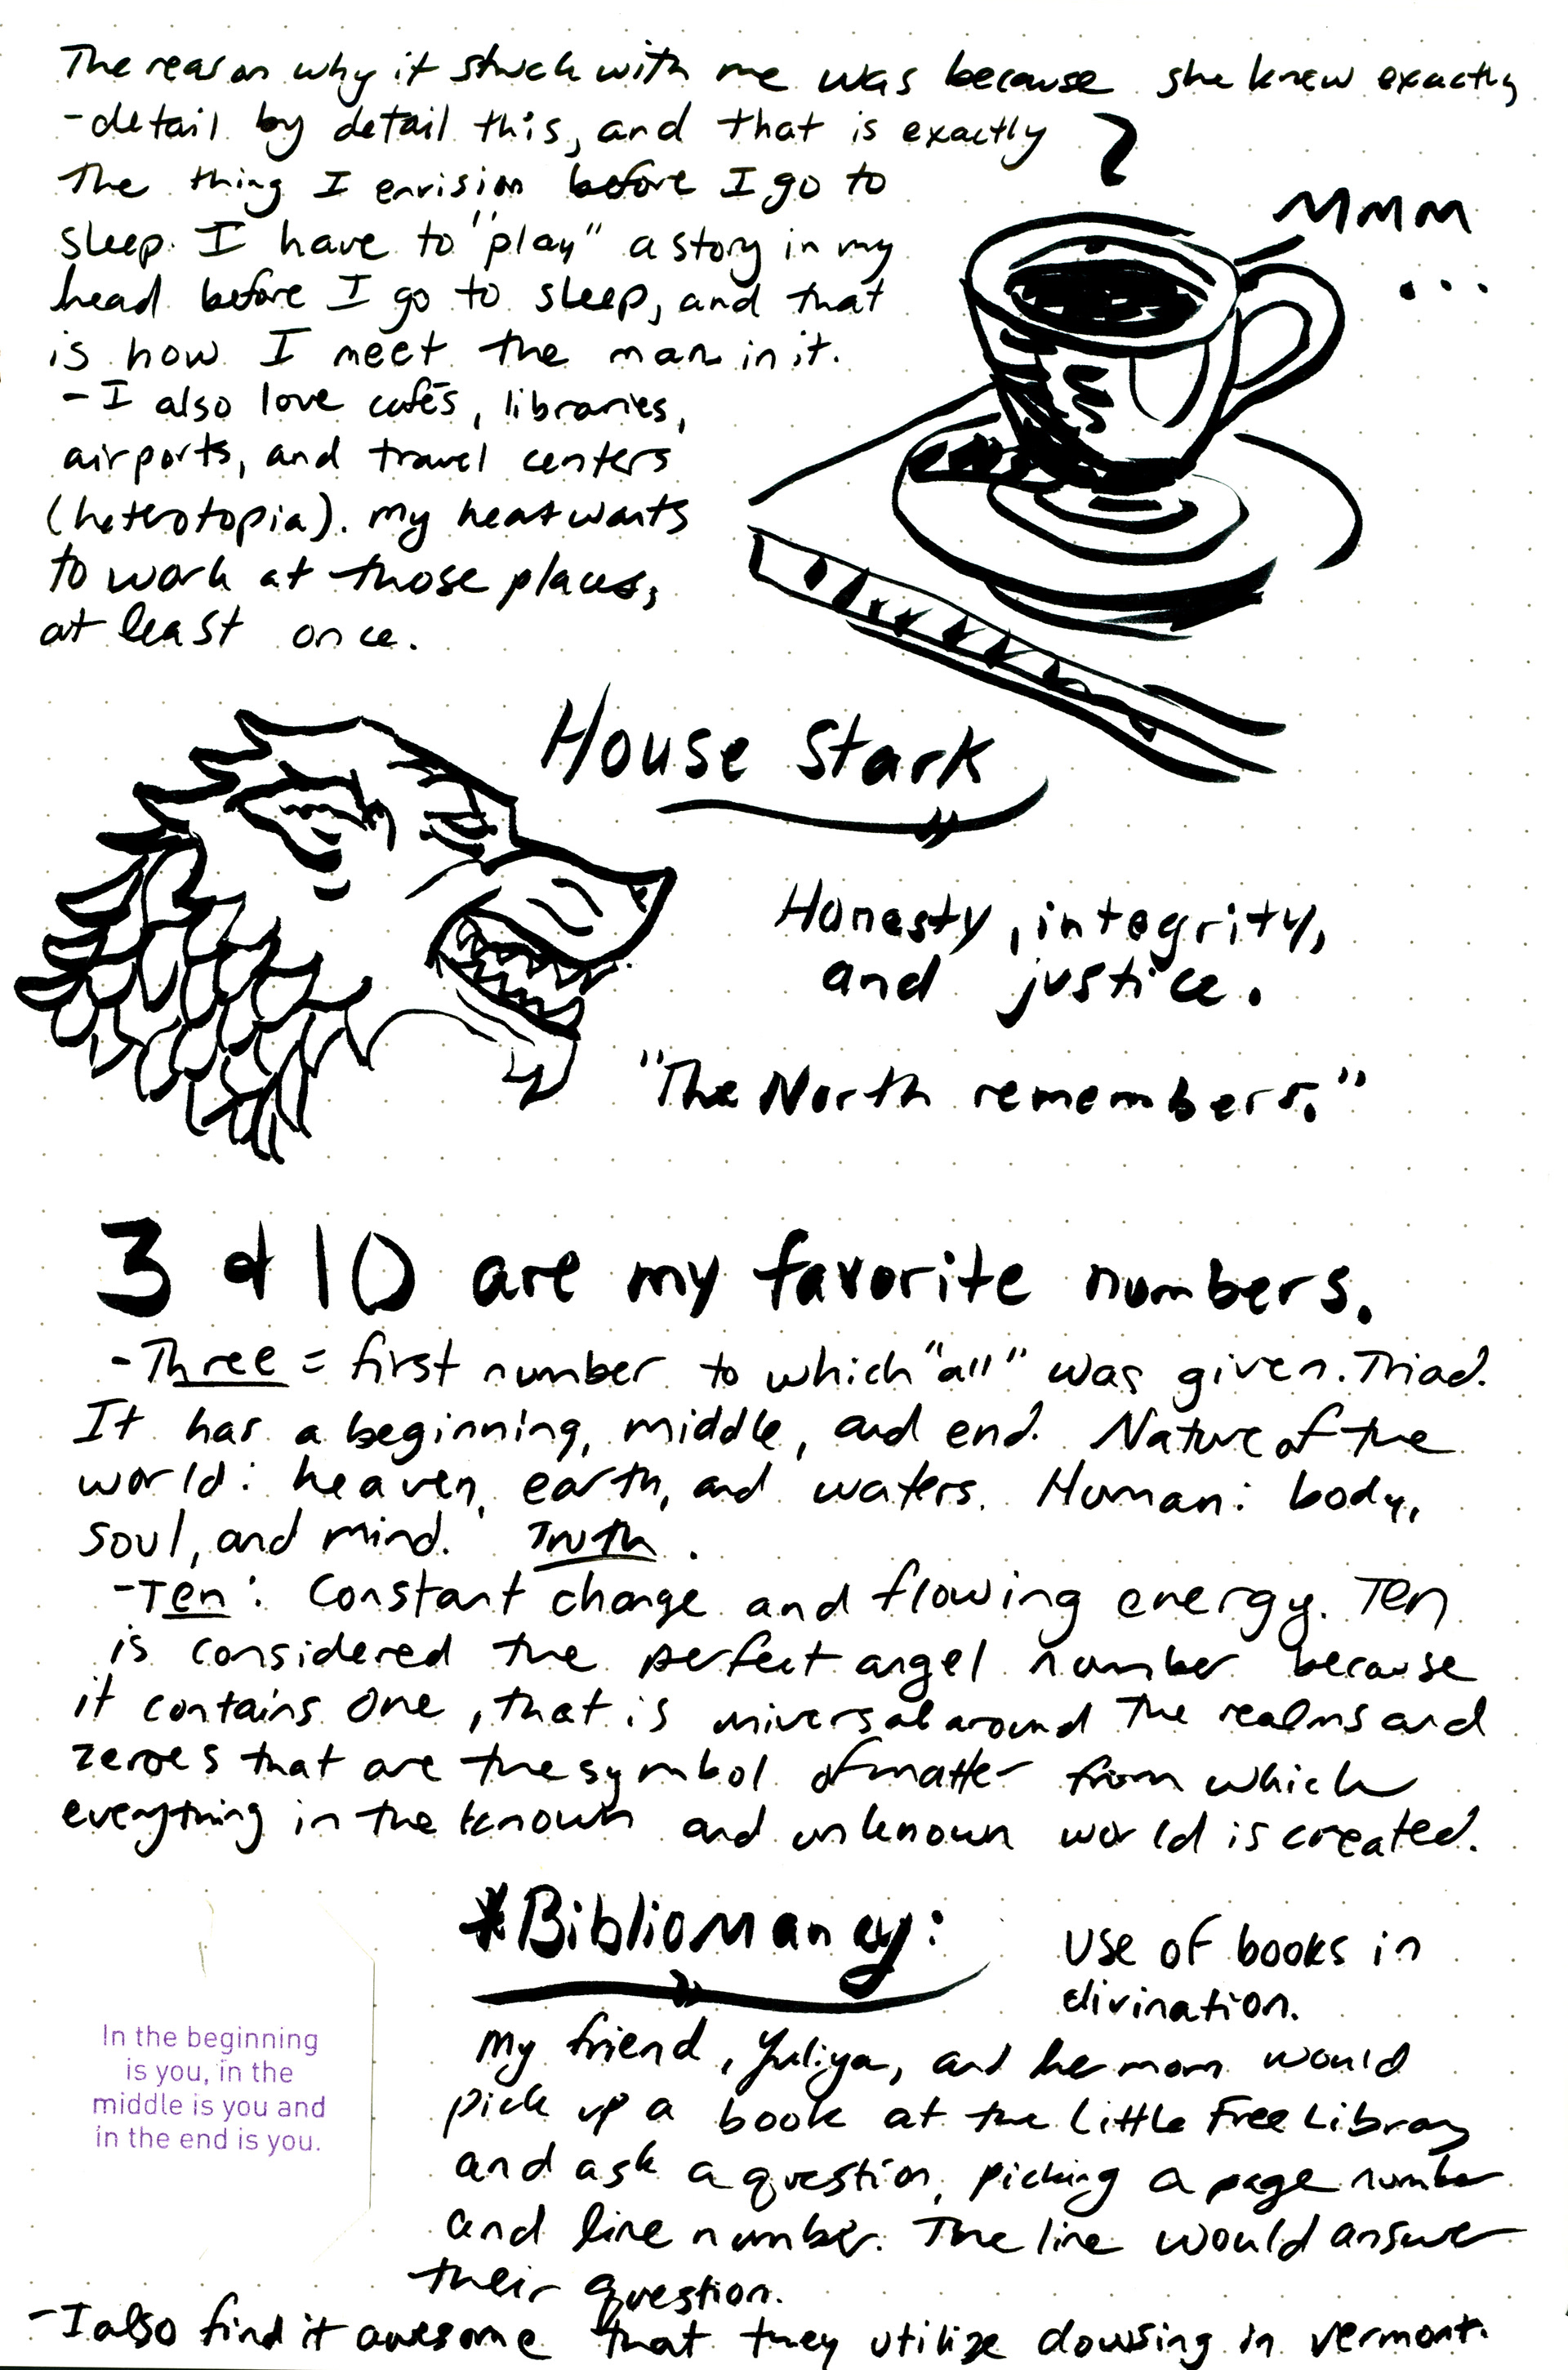 The reason why it stuck with me was because she knew exactly
-detail by detail this, and that is exactly
The thing I envision before I go to
sleep. I have to "play" a story in my
head before I go to sleep, and that
is how I meet the man in it.
- I also love cafés, libraries,
airports, and travel centers
(heterotopia). My heart wants
to work at those places,
at least once.
MMM
...
House Stark
Honesty, integrity,
and justice.
"The North remembers."
3 & 10 are my favorite numbers.
-Three = first number to which "all" was given. Triad.
It has a beginning, middle, and end. Nature of the
world: heaven, earth, and waters. Human: body,
soul, and mind. Truth.
-Ten: Constant change and flowing energy. Ten
is considered the perfect angel number because
it contains one, that is universal around the realms and
zeroes that are the symbol of matter from which
everything in the known and unknown world is created.
*Bibliomancy:
Use of books in
divination.
My friend, Yuliya, and her mom would
pick up a book at the Little Free Library
and ask a question, picking a page number
and line number. The line would answer
their question.
In the beginning
is you, in the
middle is you and
in the end is you.
-I also find it awesome that they utilize dowsing in Vermont.